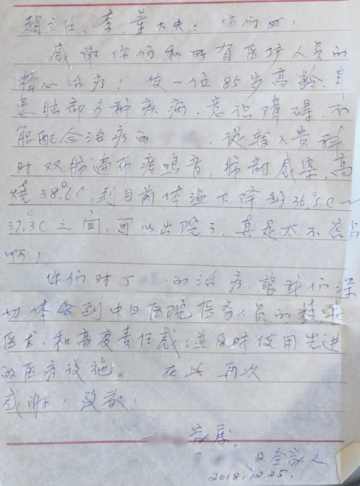 赵主任、李、董大夫：你们好！
感谢你们和所有医护人员的
精心治疗！使一位85岁高龄、
患肺部多种疾病、意识障碍、不
能配合治疗的 从转入贵科
时双肺满布痰鸣音，肺部感染高
烧38.6℃，到目前体温下降到36.5℃～
37.3℃之间，可以出院了，真是太不容易
啊！
你们对丁 的治疗 让我们深
切体会到中日医院医务人员的精湛
医术和高度责任感；并及时使用先进
的医疗设施。 在此 再次
感谢，致敬！
家属
及全家人
2018.12.25.